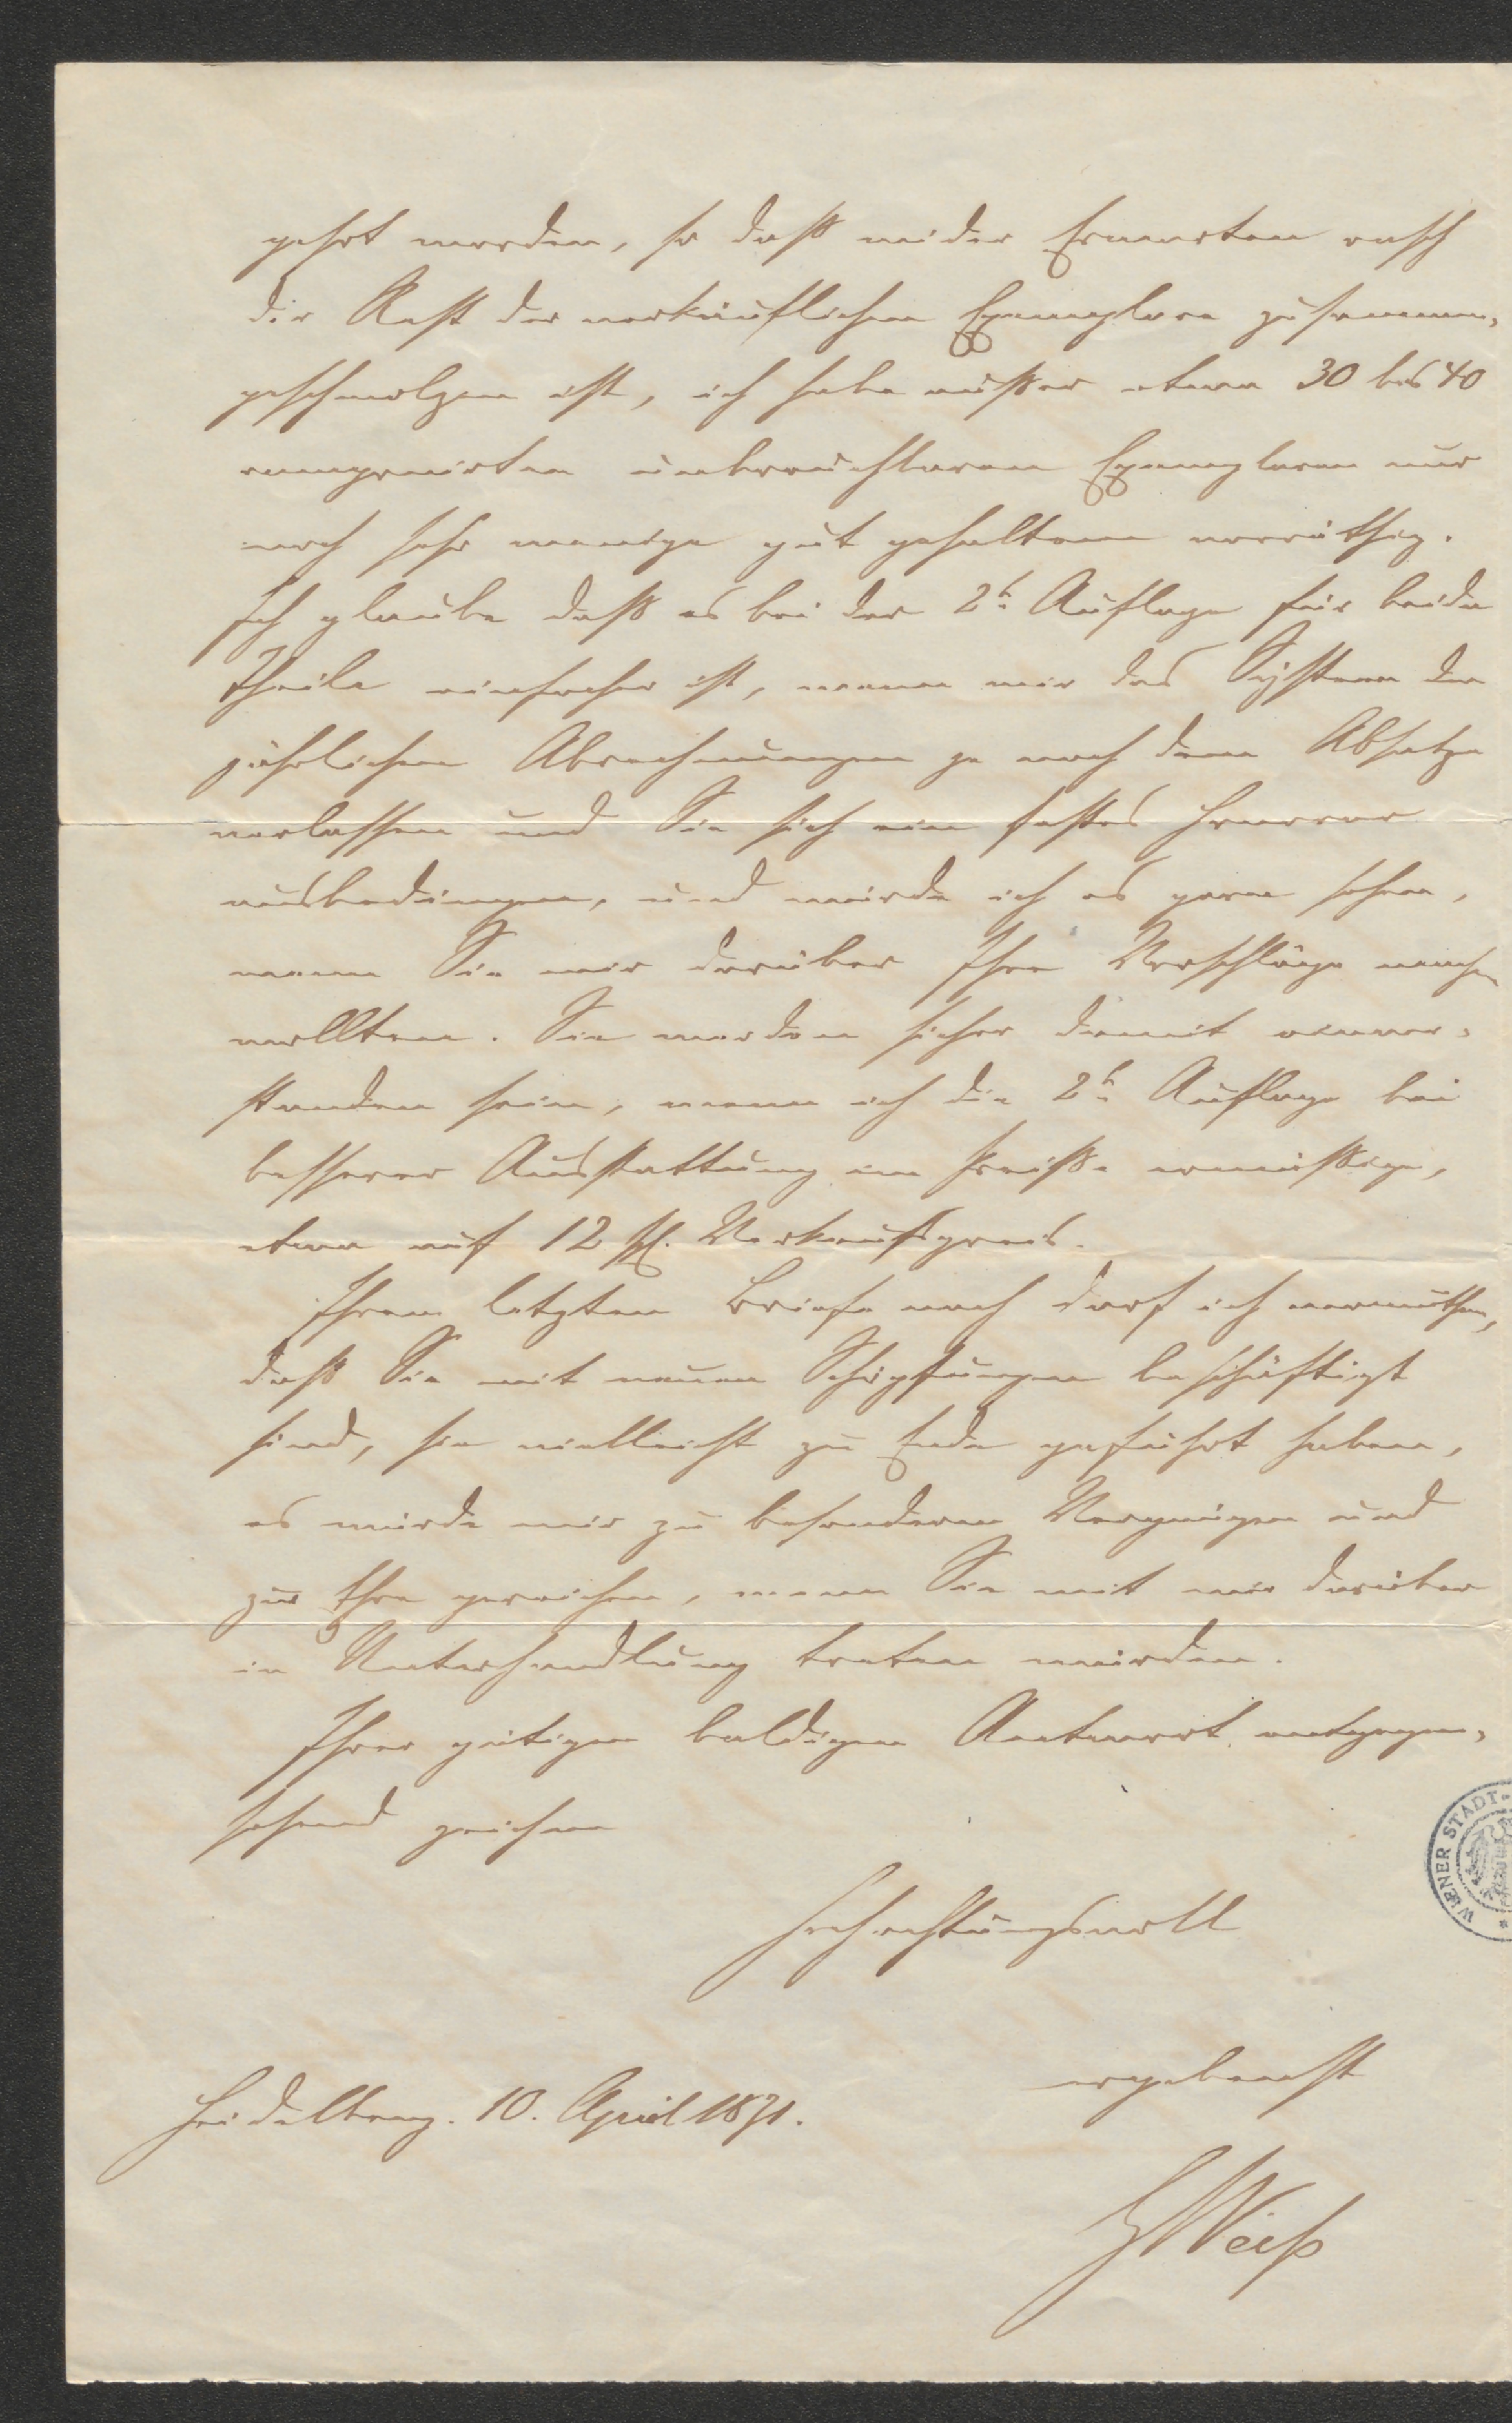 gehrt worden, so daß wider Erwarten rasch
die Rest der verkäuflichen Exemplare zusammen-
geschmolzen ist, ich habe außer etwa 30 bis 40
ramponirten unbrauchbaren Exemplaren nur
noch sehr wenige gut gehaltene vorräthig.
Ich glaube daß es bei der 2t Auflage für beide
Theile einfacher ist, wenn wir das System der
jährlichen Abrechnungen je nach dem Absatze
verlassen und Sie sich ein festes Honorar
ausbedingen, und würde ich es gern sehen,
wenn Sie mir darüber Ihre Vorschläge machen
wollten. Sie werden sicher damit einver-
standen sein, wenn ich die 2t Auflage bei
besserer Ausstattung im Preiße ermäßige,
etwa auf 12 Verkaufspreis.
Ihrem letzten Briefe nach darf ich vermuthen,
daß Sie mit neuen Schöpfungen beschäftigt
sind, sie vielleicht zu Ende geführt haben,
es würde mir zu besonderem Vergnügen und
zur Ehre gereichen, wenn Sie mit mir darüber
in Unterhandlung treten würden.
Ihrer gütigen baldigen Antwort entgegen-
sehend zeichne
Hochachtungsvoll
ergebenst
Heidelberg. 10. April 1871.
GWeiß
WIENER STADT-